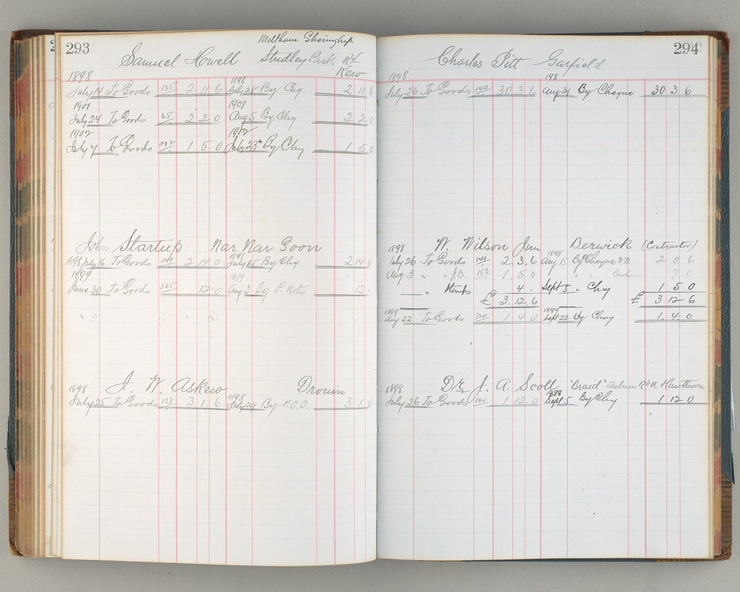 293
Samuel Howell Studley Park Rd
Kew
1898 1898
July 14 To Goods 2 11 6 July 28 By Chq 2 11 6
1901 1901
July 24 To Goods 65 2 2 0 Aug 5 By Chq 2 2 0
1902 1902
July 7 To Goods 1 5 0 July 23rd By Chq 1 5 0
John Startup Nar Nar Goon
1898 July 16 To Goods 2 14 0 July 25 By Chq 2 14 0
1899 1899
June 30 To Goods 12 0 Aug 3 By P. Note 12
J. W. Askew Drouin
1898 1898
July 25 To Goods 3 1 6 July 29 By P.O.O. 3 1 6
294
Charles Pitt Garfield
1898 198
July 26 To Goods 30 3 6 Aug 31 By Cheque 30 3 6
W. Wilson Jun Berwick (Contractor)
1898 1898
July 26 To Goods 2 3 6 Aug 15 By Cheque 2 0 6
Aug 3 " " 1 5 0 " " 7 0
4 - Sept 5 " Chq 1 5 0
£ 3 12 6 £ 3 12 6
1899 1899
Aug 22 To Goods 1 4 0 Sept 22 By Chq 1 4 0
Dr J. A. Scott "Braid" Auburn Rd Hawthorn
1898 1898
July 26 To Goods 1 12 0 Sept 5 By Chq 1 12 0